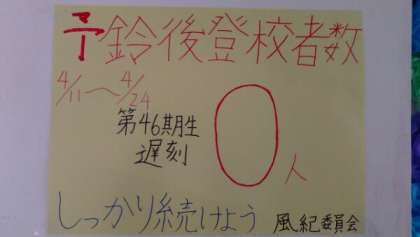 予鈴後登校者数
4/11〜4/24
第46期生
遅刻
0人
しっかり続けよう
風紀委員会